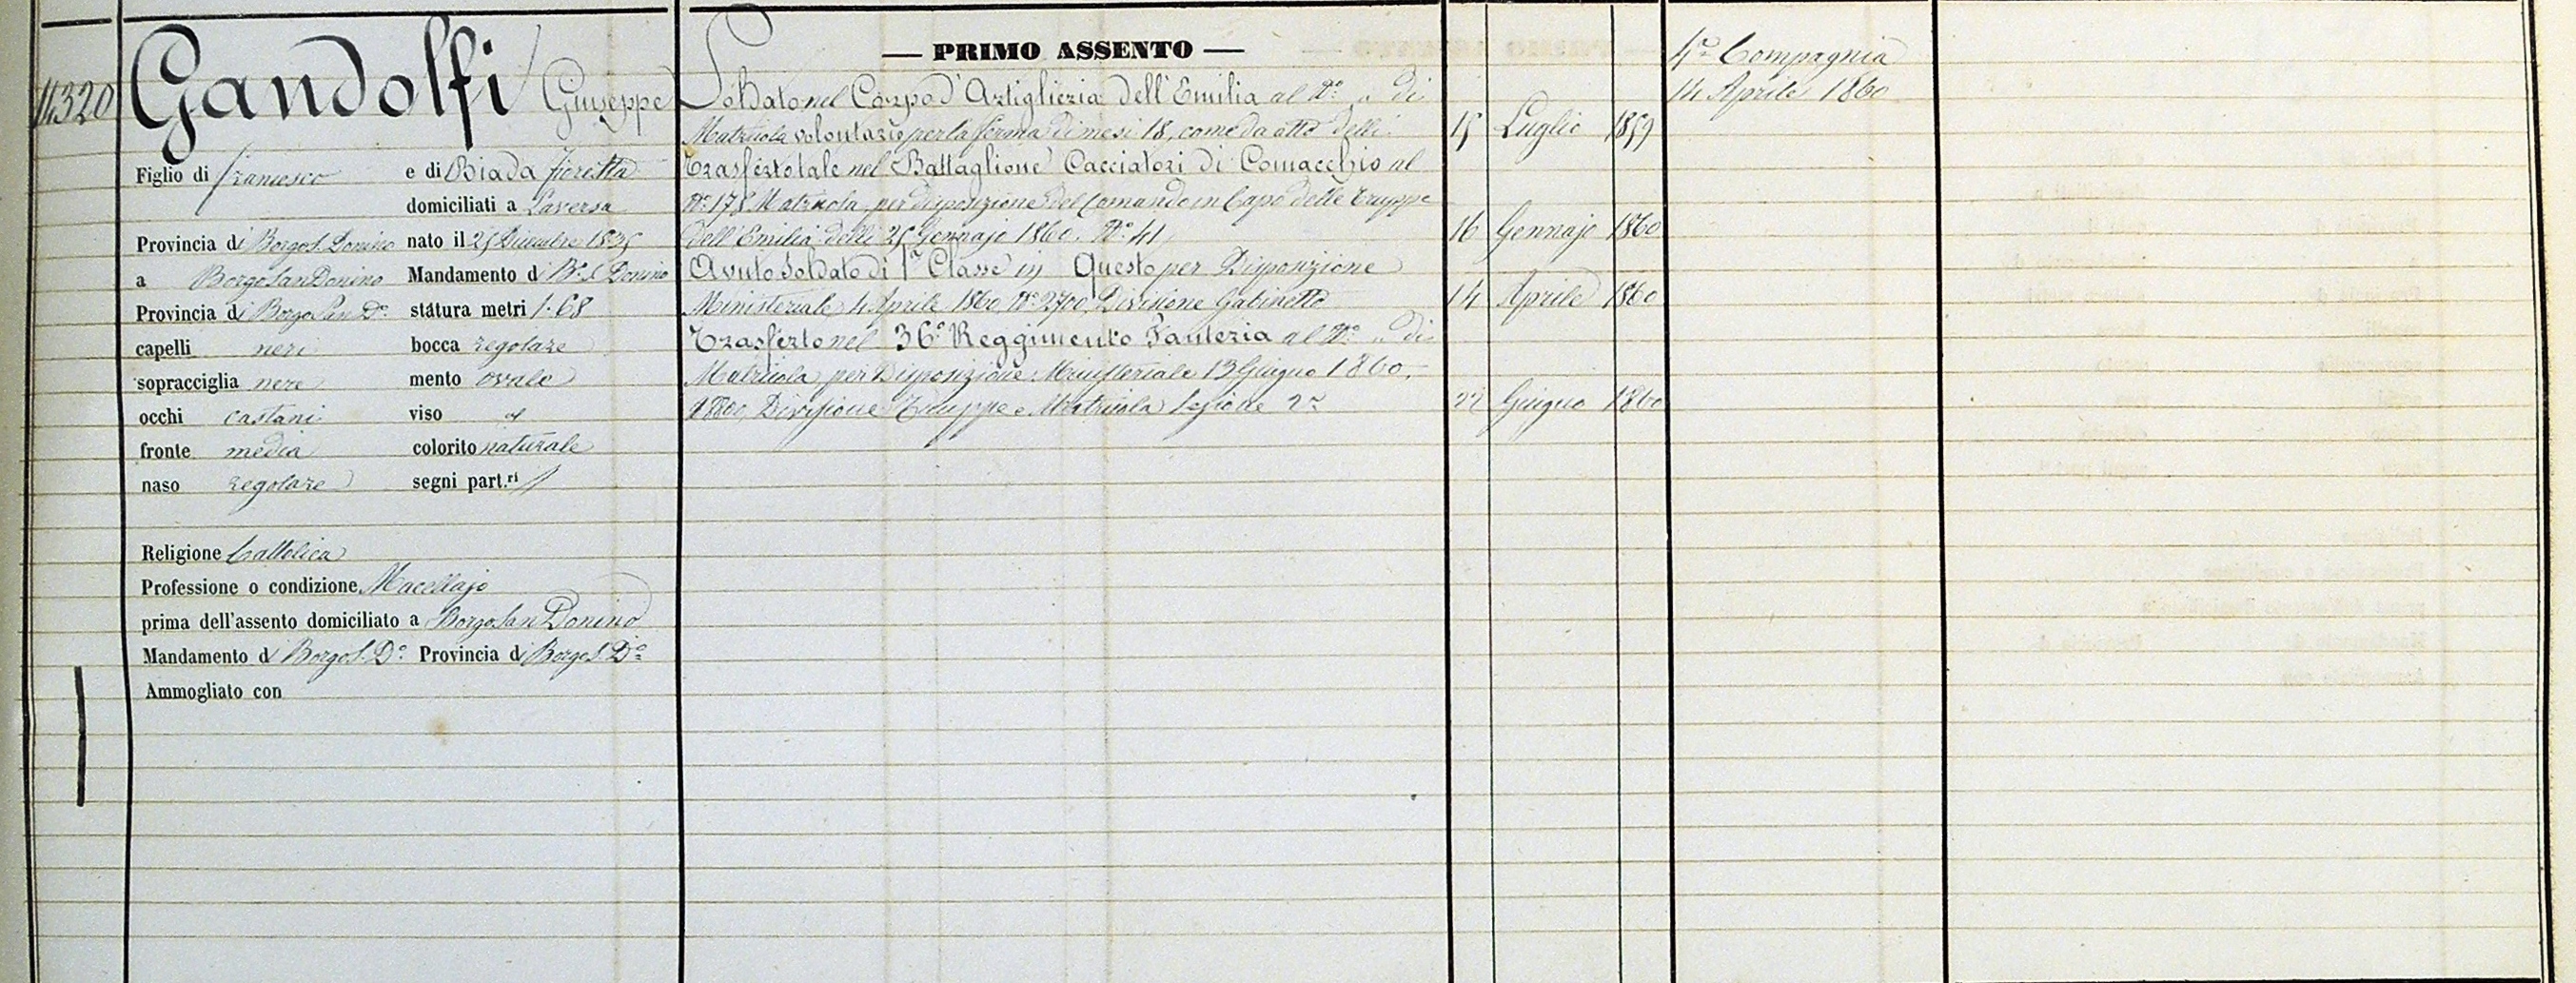 14320
Gandolfi Giuseppe
Figlio di Francesco e di Biada Fioretta
domiciliati a Laversa
Provincia di Borgo S. Donino nato il 25 Dicembre 1835
a Borgo San Donino Mandamento di B.o S. Donino
Provincia di Borgo San D.o statura metri 1.68
capelli neri bocca regolare
sopracciglia nere mento ovale
occhi castani viso
fronte media colorito naturale
naso regolare segni part.ri /
Religione Cattolica
Professione o condizione Macellajo
prima dell'assento domiciliato a Borgo San Donino
Mandamento di Borgo S. D.o Provincia di Borgo S. D.o
Ammogliato con
— PRIMO ASSENTO —
Soldato nel Corpo d'Artiglieria dell'Emilia al N.o „ di
Matricola volontario per la ferma di mesi 18, come da atto delli 15 Luglio 1859
Trasferto tale nel Battaglione Cacciatori di Comacchio al
N.o 178 Matricola, per disposizione del Comando in Capo delle Truppe
dell'Emilia delli 25 Gennajo 1860. N.o 41 16 Gennajo 1860
Avuto Soldato di 1.a Classe in Questo per Disposizione
Ministeriale 4 Aprile 1860, N.o 2700, Divisione Gabinetto 14 Aprile 1860
Trasferto nel 36.o Reggimento Fanteria al N.o „ di
Matricola per Disposizione Ministeriale 13 Giugno 1860.
Divisione Truppe e Matricola Sezione 2.a 22 Giugno 1860
4.a Compagnia
14 Aprile 1860